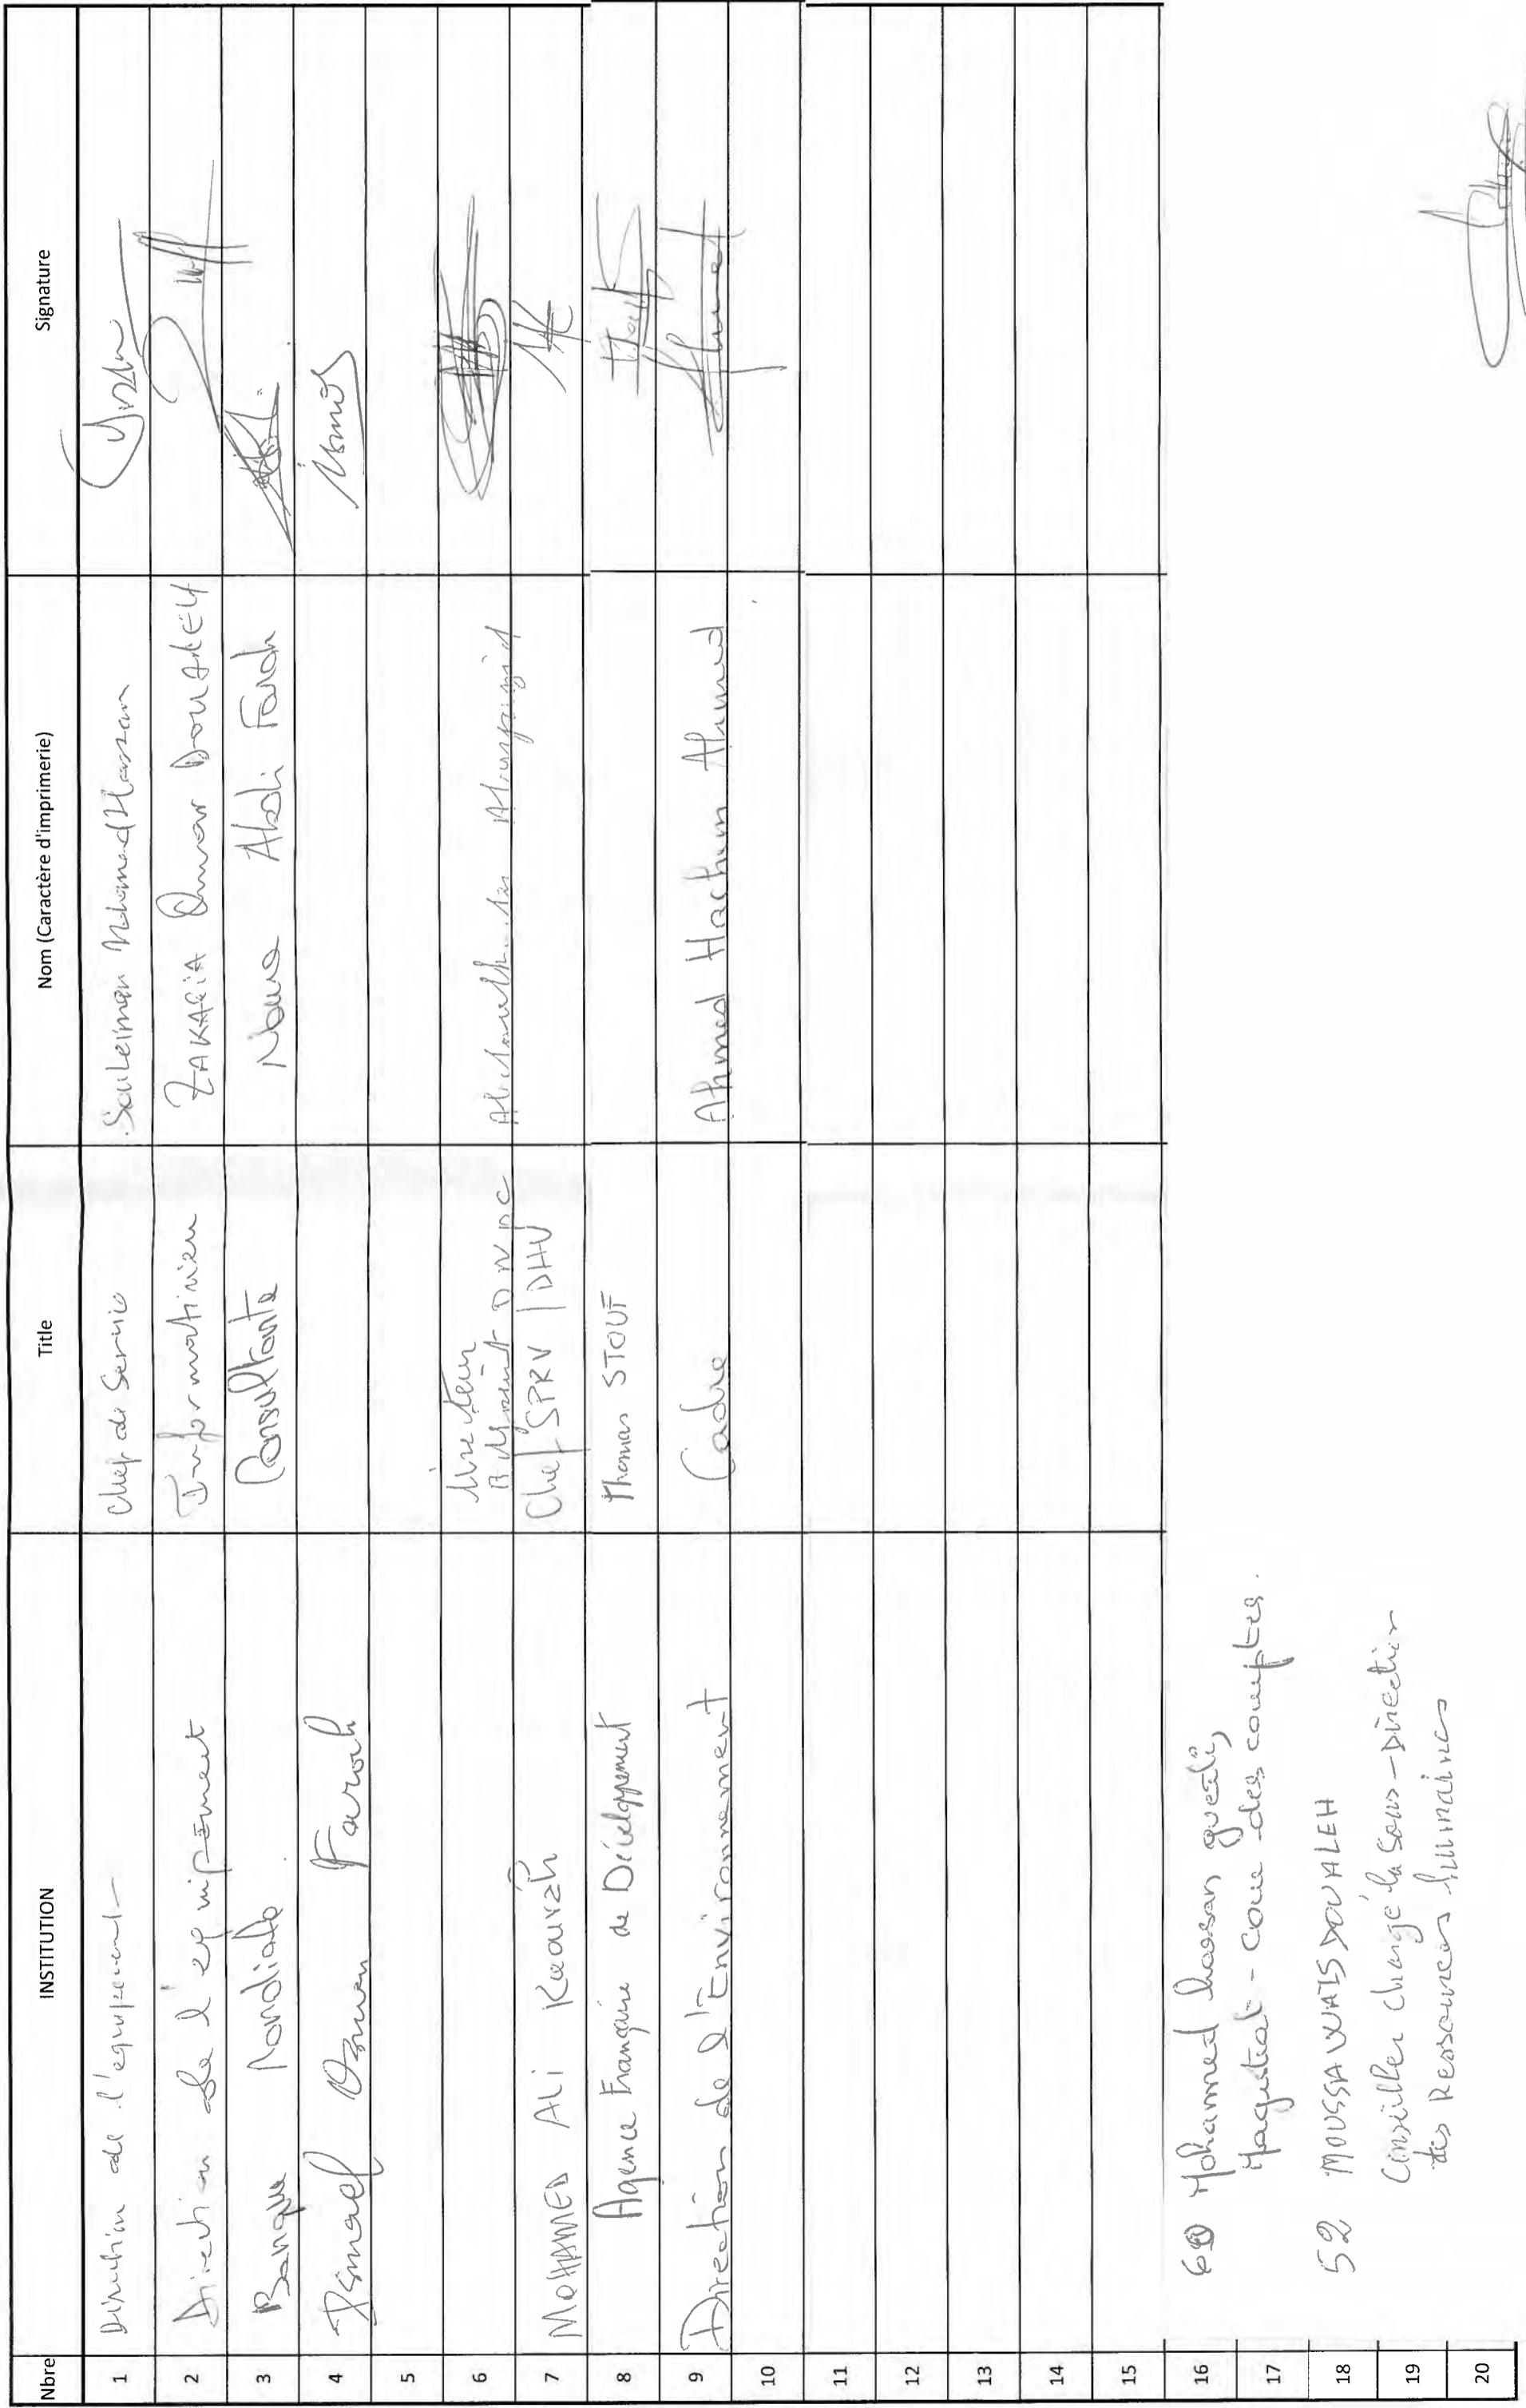 Nbre INSTITUTION Title Nom (Caractère d'imprimerie) Signature
1 Direction de l'equipement Chef de Service Souleiman Mohamed Hassan
2 Direction de l'equipement Informaticien ZAKARIA Omar DOUALEH
3 Banque Mondiale Consultante Abdi Farah
4 Ismael Osman Farah
5
6 Directeur
7 MOHAMED ALI Chef SPRV / DHU
8 Agence Française de Développement Thomas STOUF
9 Direction de l'Environnement Cadre Ahmed Hachim Ahmed
10
11
12
13
14
15
16 Mohamed hassan
17 Magistrat - Cour des comptes.
18 52 MOUSSA WAIS DOUALEH
19 Conseiller chargé la Sous-Direction
des Ressources humaines
20